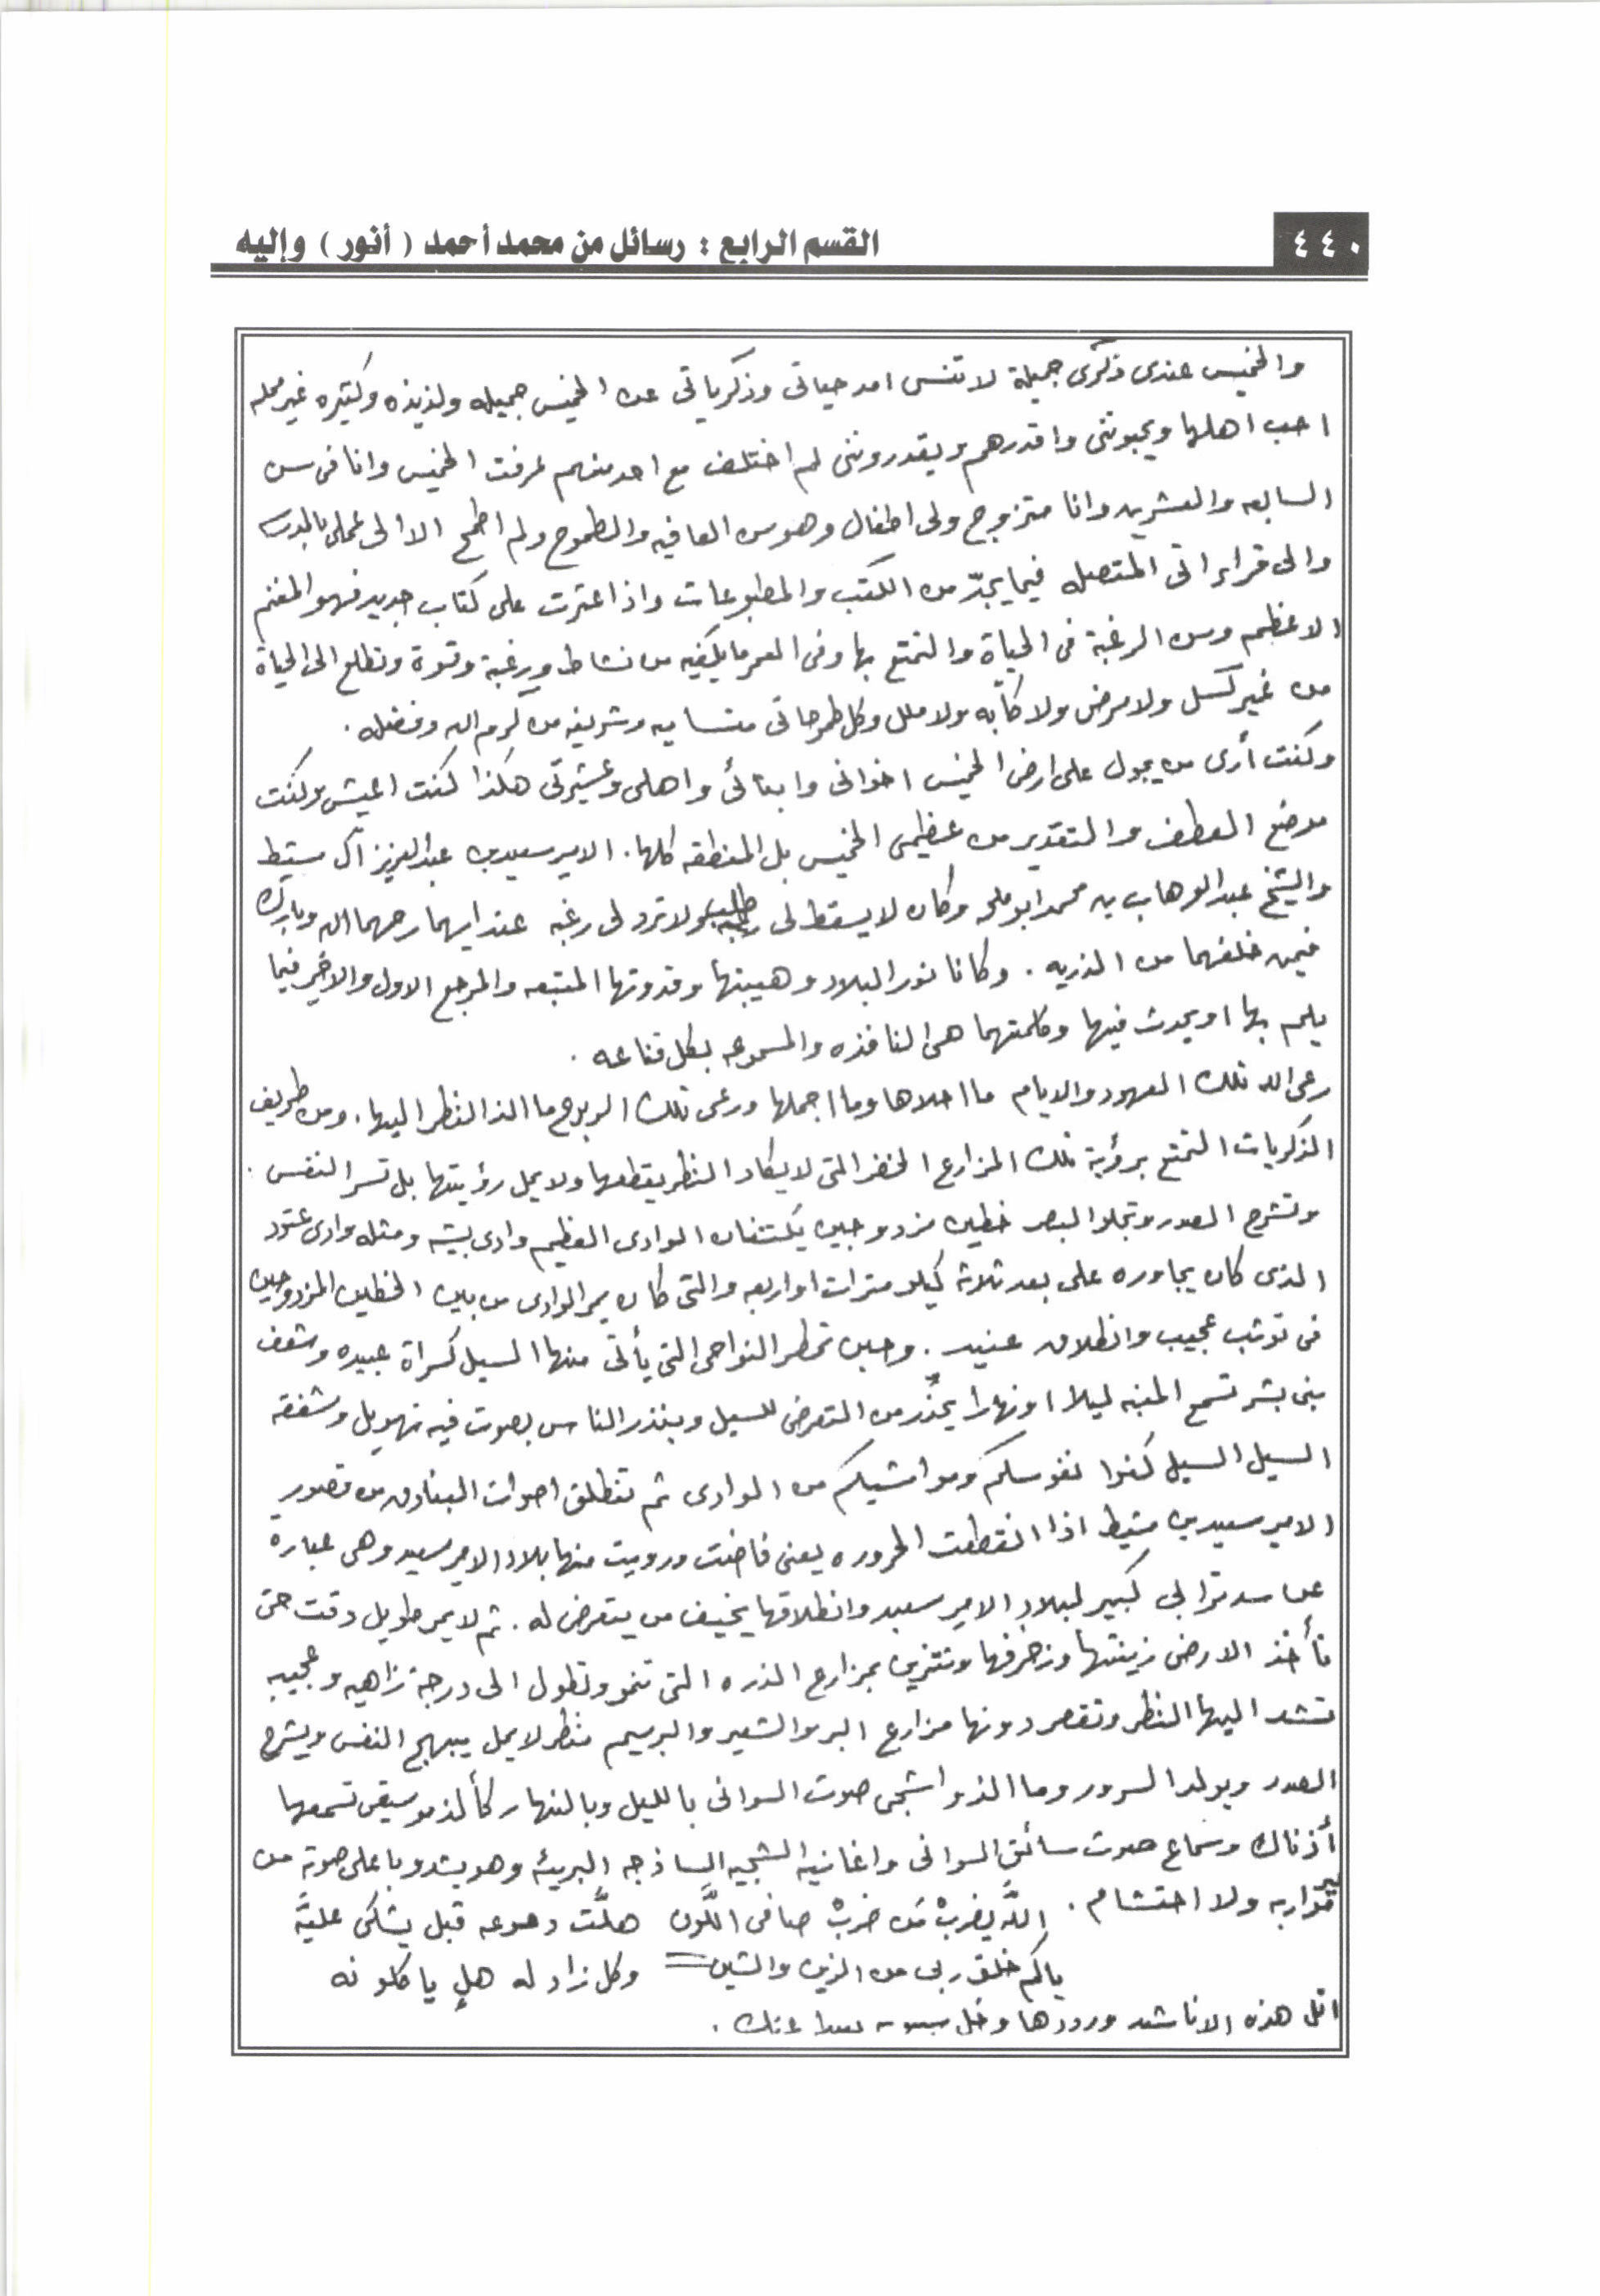 ٤٤٠
القسم الرابع : رسائل من محمد أحمد ( أنور ) وإليه
والخميس عندى ذكرى جميلة لا تنسى امد حياتى وذكرياتى عن الخميس جميله ولذيذه وكثيره غير ممله
احب اهلها ويحبوننى واقدرهم ويقدروننى لم اختلف مع احد منهم عرفت الخميس وانا فى سن
السابعه والعشرين وانا متزوج ولى اطفال وهو سن العافيه والطموح ولم اطمح الا الى عملى بالمدرسه
والى قراءاتى المتصله فيما يجدّ من الكتب والمطبوعات واذا عثرت على كتاب جديد فهو المغنم
الاعظم وسن الرغبة فى الحياة والتمتع بها وفى العمر ما يكفيه من نشاط ورغبة وقوة وتطلع الى الحياة
من غير كسل ولا مرض ولا كآبه ولا ملل وكل طموحاتى متساميه وشريفه من كرم الله وفضله .
وكنت أرى من يجول على ارض الخميس اخوانى وابنائى واهلى وعشيرتى هكذا كنت اعيش وكنت
موضع العطف والتقدير من عظيمى الخميس بل المنطقه كلها . الامير سعيد بن عبدالعزيز آل مشيط
والشيخ عبدالوهاب بن محمد ابو ملحه وكان لا يسقط لى طلب ولا ترد لى رغبه عند ايهما رحمهما الله وبارك
فيمن خلفهما من الذريه . وكانا نور البلاد وهيبتها وقدوتها المتبعه والمرجع الاول والاخير فيما
يلم بها او يحدث فيها وكلمتهما هى النافذه والمسموعه بكل قناعه .
رعى الله تلك العهود والايام ما احلاها وما اجملها ورعى تلك الربوع ما الذ النظر اليها . ومن طريف
الذكريات التمتع برؤية تلك المزارع الخضر التى لا يكاد النظر يقطعها ولا يمل رؤيتها بل تسر النفس .
وتشرح الصدر وتجلوا البصر خطين مزدوجين يكتنفان الوادى العظيم وادى بيشه ومثله وادى عتود
الذى كان يجاوره على بعد ثلاثة كيلو مترات او اربعه والتى كان يمر الوادى من بين الخطين المزدوجين
فى توثب عجيب وانطلاق عنيد . وحين تمطر النواحى التى يأتى منها السيل كسراة عبيده وشعف
بنى بشر تسمع المنبه ليلا او نهارا يحذّر من التعرض للسيل وينذر الناس بصوت فيه تهويل وشفقه
السيل السيل كفوا نفوسكم ومواشيكم من الوادى ثم تنطلق اصوات البنادق من قصور
الامير سعيد بن مشيط اذا انقطعت الحروره يعنى فاضت ورويت منها بلاد الامير سعيد وهى عبارة
عن سد ترابى كبير لبلاد الامير سعيد وانطلاقها يخيف من يتعرض له . ثم لا يمر طويل وقت حتى
تأخذ الارض زينتها وزخرفها وتتزين بمزارع الذره التى تنمو وتطول الى درجة زاهيه وعجيبه
تشد اليها النظر وتقصر دونها مزارع البر والشعير والبرسيم منظر لا يمل يبهج النفس ويشرح
الصدر ويولد السرور وما الذ واشجى صوت السوانى بالليل وبالنهار كألذ موسيقى تسمعها
أذناك وسماع صوت سائق السوانى واغانيه الشجيه الساذجه البريئه وهو يشدو باعلى صوته من
غير مواربه ولا احتشام . اللّه يضربْ مَن ضربْ صافى اللّون هلّت دموعه قبل يشكى عليّه
ياكم خلق ربى من الزين والشين وكل زاد له هلٍ ياكلونه
اتل هذه الاناشد ورددها وخل عنك .